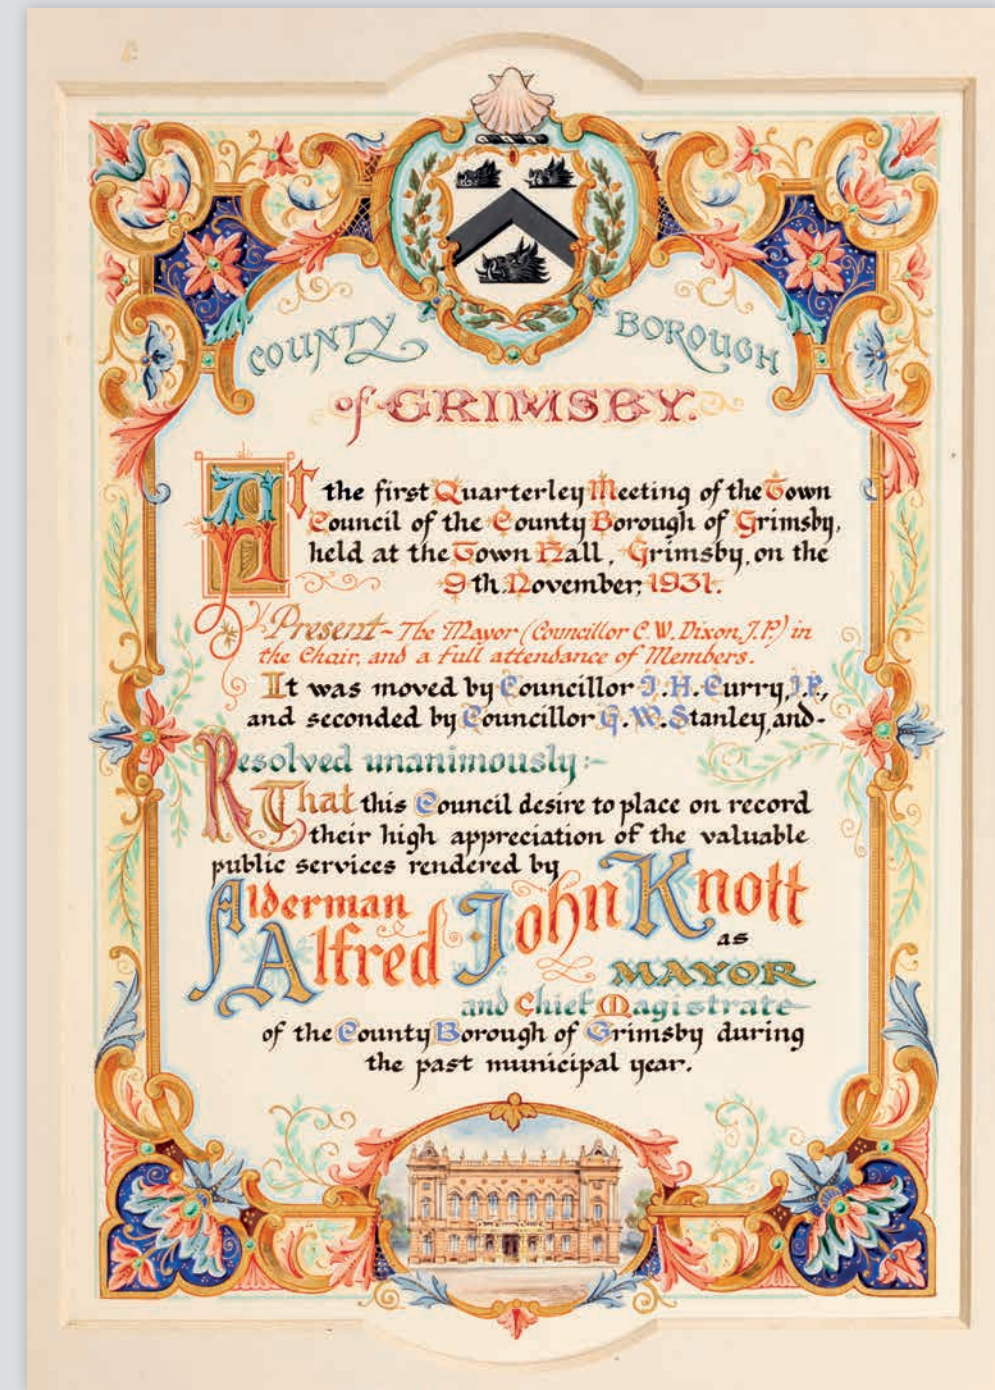 COUNTY BOROUGH
of GRIMSBY.
At the first Quarterley Meeting of the Town
Council of the County Borough of Grimsby,
held at the Town Hall, Grimsby, on the
9th. November, 1931.
Present - The Mayor (Councillor C. W. Dixon, J.P.) in
the Chair, and a full attendance of Members.
It was moved by Councillor J. H. Curry, J.P.,
and seconded by Councillor G. W. Stanley, and -
Resolved unanimously :-
That this Council desire to place on record
their high appreciation of the valuable
public services rendered by
Alderman
Alfred John Knott
as
MAYOR
and Chief Magistrate
of the County Borough of Grimsby during
the past municipal year.